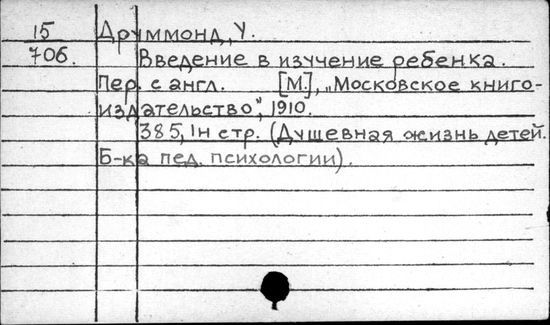 15 Друммонд, У.
706. Введение в изучение ребенка.
Пер. с англ. [М.], „Московское книго-
издательство", 1910.
385, 1н стр. (Душевная жизнь детей.
Б-ка пед. психологии).